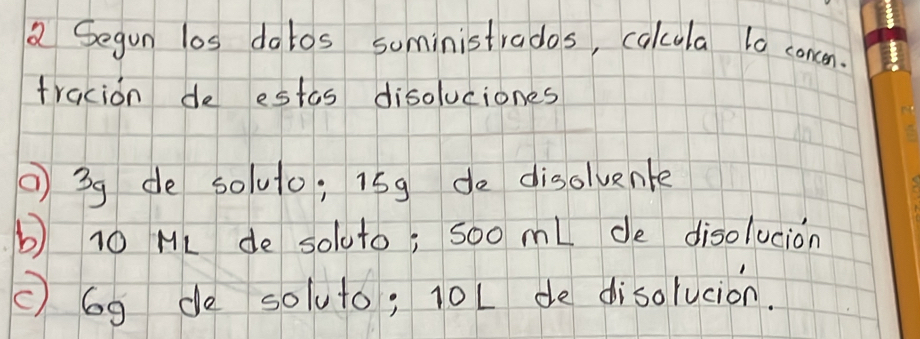 2 Segun los datos suministrados, calcula la concen-
tración de estas disoluciones
a) 3g de soluto; 15g de disolvente
b) 10 ML de soluto; 500 mL de disolución
c) 6g de soluto; 10L de disolución.